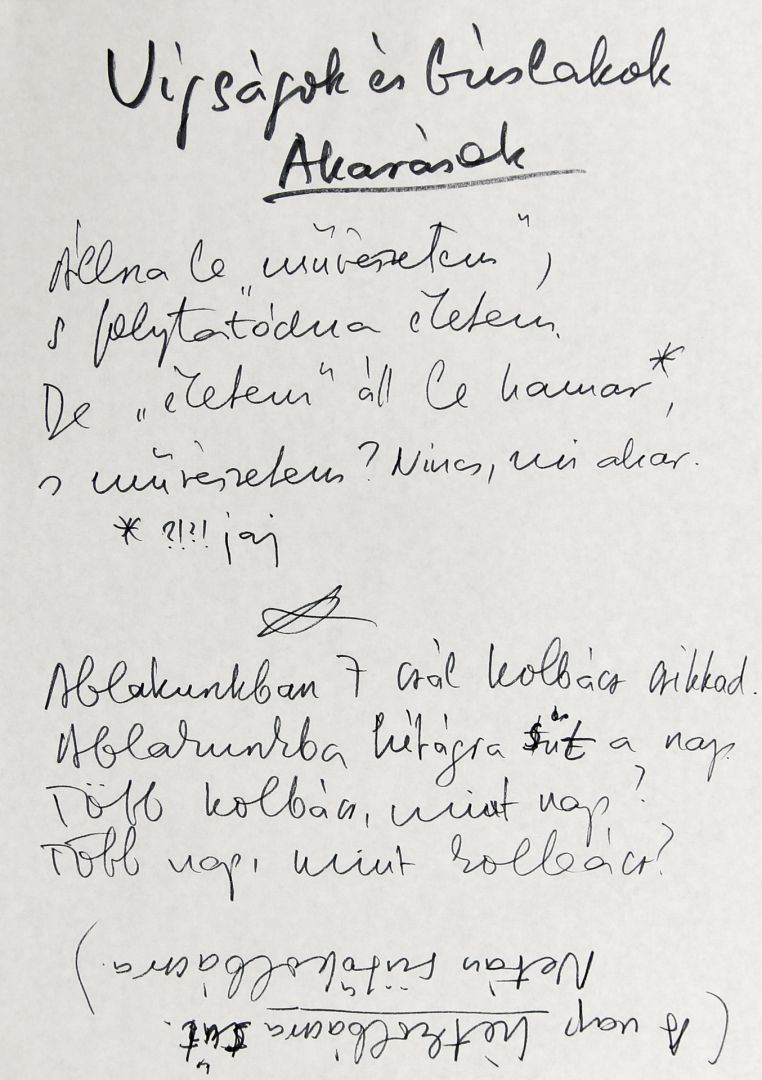 Vígságok és búslakok
Akarások
Állna le „művészetem",
s folytatódna életem.
De „életem" áll le hamar*,
s művészetem? Nincs, mi akar.
* ?!?! jaj
Ablakunkban 7 szál kolbász csikkad.
Ablakunkba hétágra süt a nap.
Több kolbász, mint nap?
Több nap, mint kolbász?
(A nap hétkolbászra süt.
Netán sütőkolbászra.)